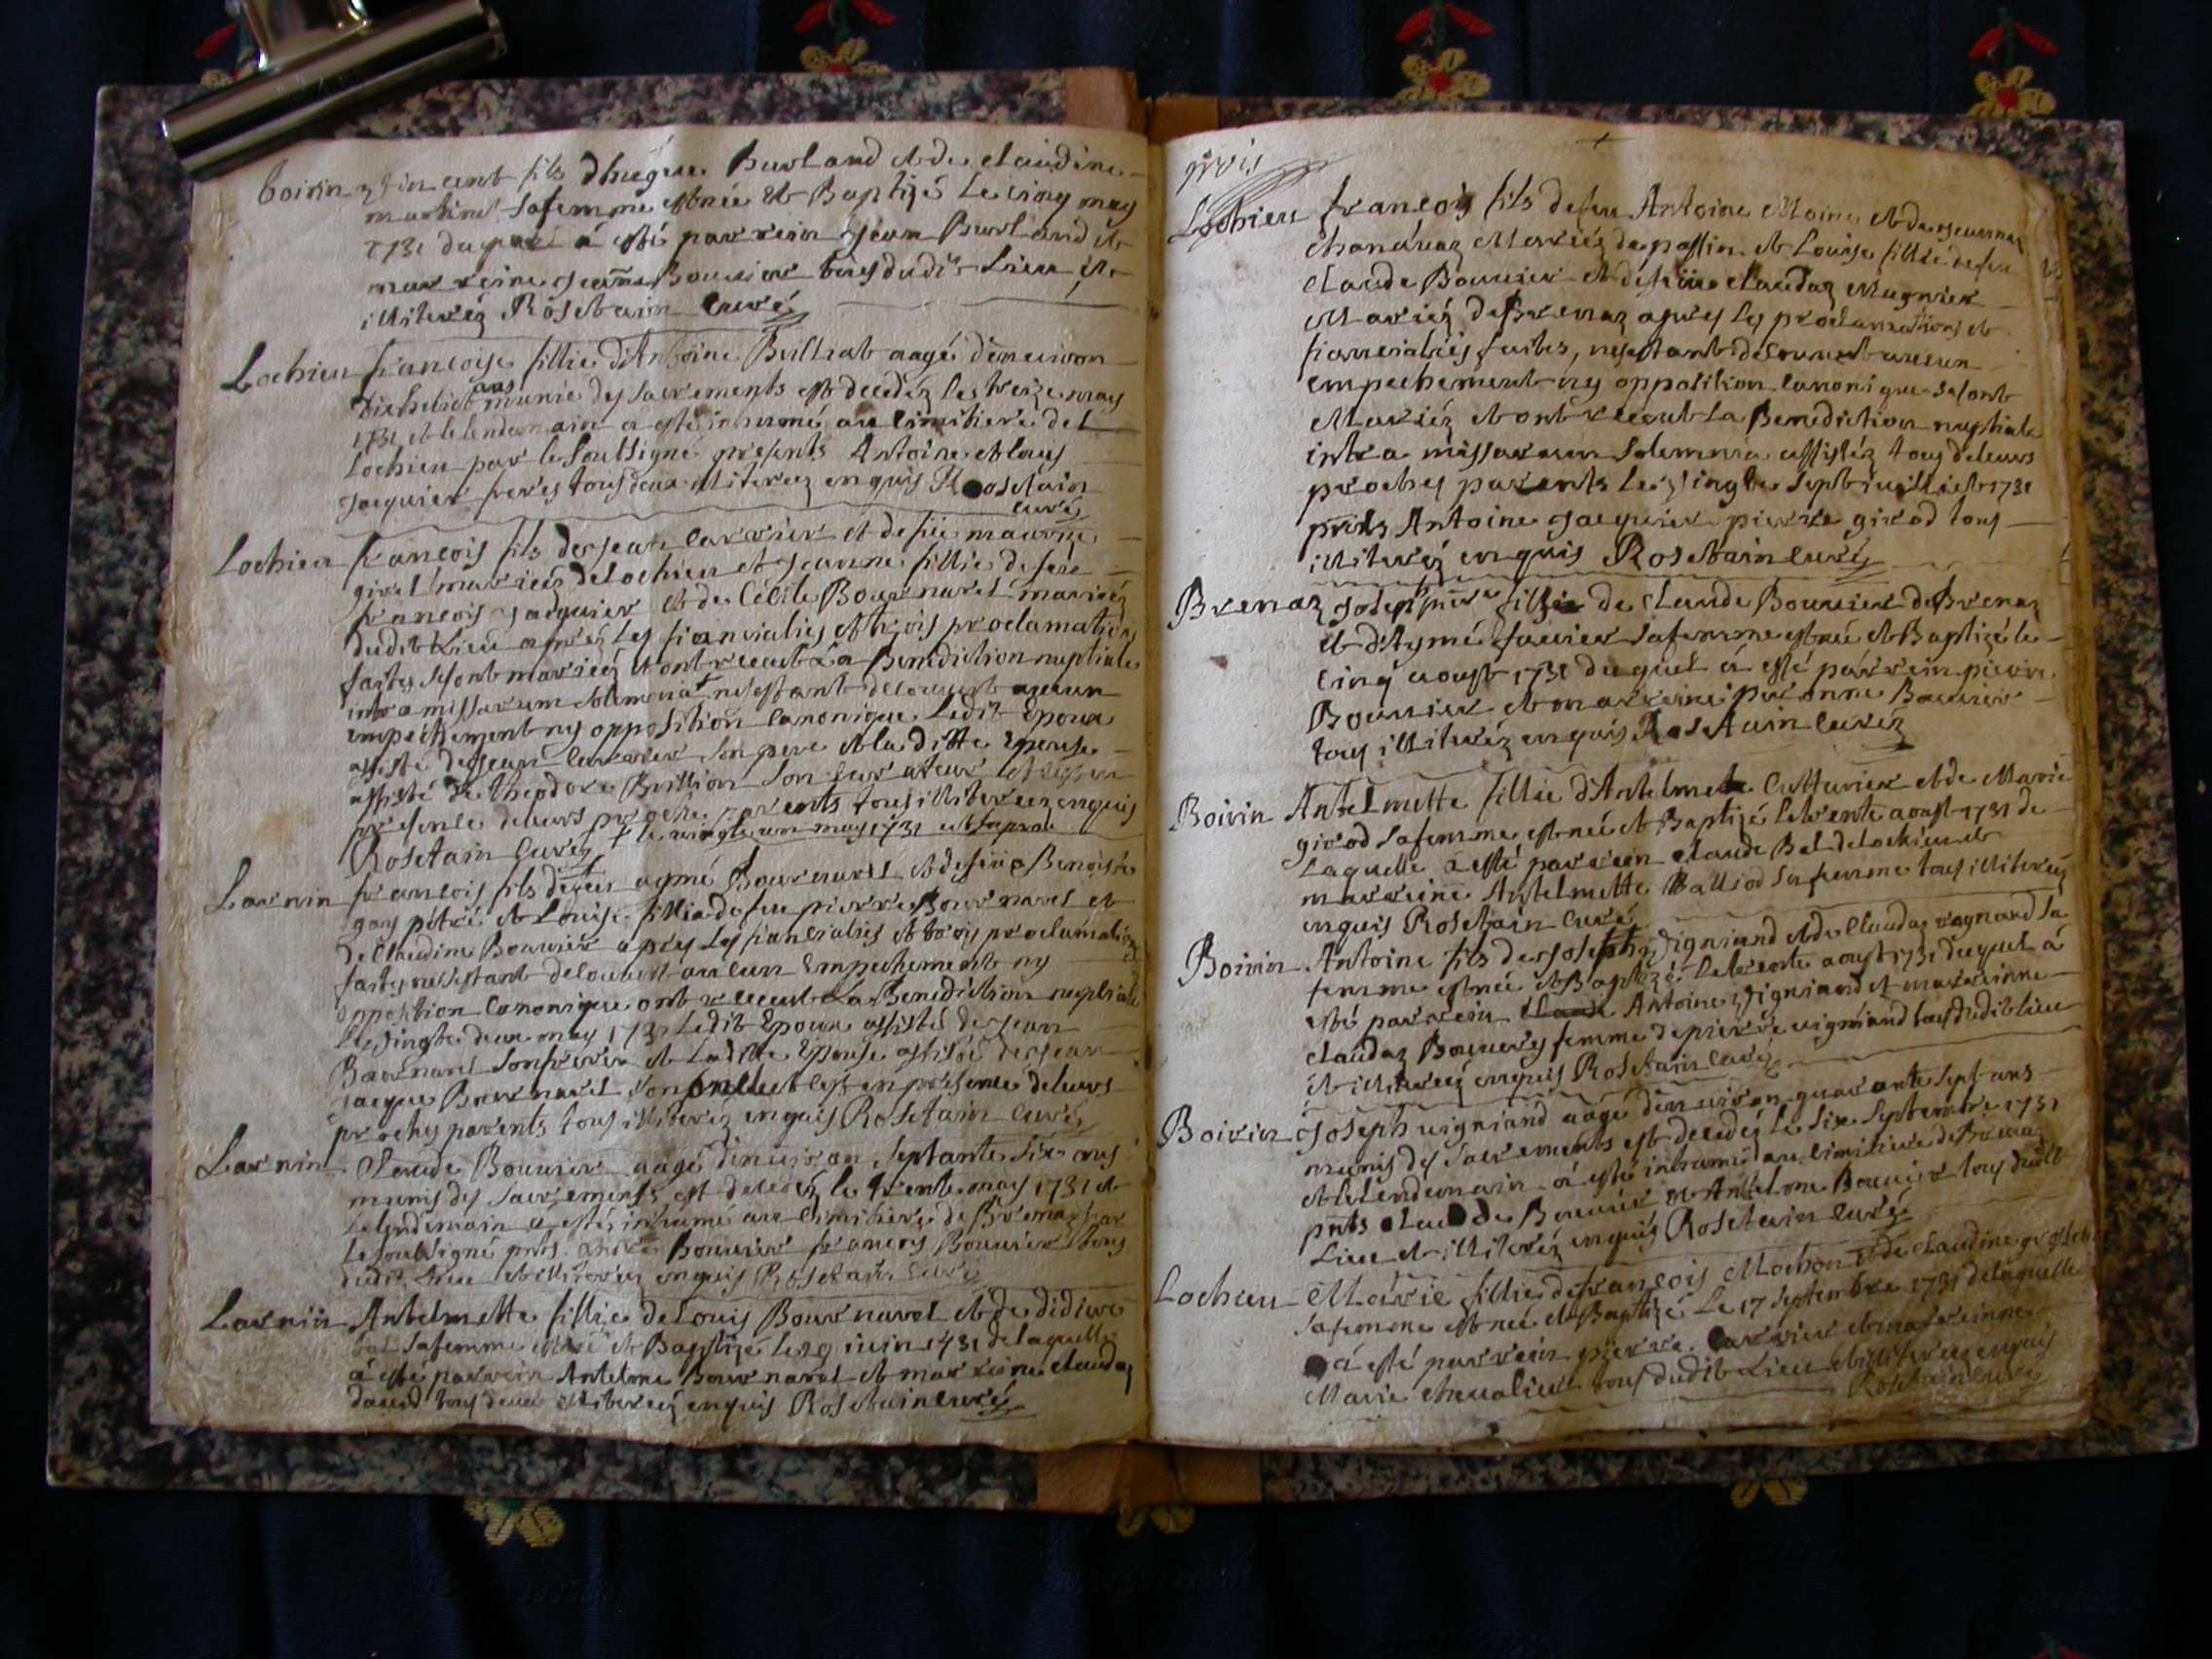 boirin vincent fils dhugue Burland et de claudine
martine sa femme est née et Baptizé le cinq may
1731 duquel á esté parrein Jean Burland et
marreine Jeanne Bouvier tous dudit Lieu et
illiterez Rosetain curé
Lochieu francoise fillie d'Antoine Bulliat aagé d'enuiron
dixhuict ans munie des sacrements est decedéz le treize may
1731 et le lendemain a esté inhumé au cimitiere de
Lochieu par le soubsigné presents Antoine et louys
Jacquier freres tous deux illiterez enquis Rosetain
curé
Lochieu francois fils de Jean carrier et de feüe maurise
girel mariéz de Lochieu et Jeanne fillie de feu
francois Jacquier et de Cécile Bournarel mariéz
dudit Lieu aprez les fiancialies et trois proclamations
faites se sont mariéz et ont receut La Benediction nuptiale
intra missarum solemnia ne s'estant decouuert aucun
empechement ny opposition canonique Ledit Epoux
assisté de Jean carrier son pere et la ditte Epouse
assisté de theodore Brillion son curateur et
presence de leurs proche parents tous illiterez enquis
Rosetain curéz le vingte un may 1731 et
Larnin francois fils de feu aymé Bournarel et de feüe Benoiste
gay et Louise fillie de feu pierre Bournarel et
de Claudine Bouvier aprez les fiancialies et trois proclamations
faites ne s'estant decouuert aucun Empechement ny
opposition canonique ont receut La Benediction nuptiale
Le vingte deux may 1731 Ledit Epoux assisté de Jean
Bournarel son frere et Laditte Epouse assisté de Jean
jacque Bournarel son oncle et en presence de leurs
proches parents tous illiterez enquis Rosetain curé
Larnin Claude Bouvier aagé d'enuiron septante six ans
munis des sacrements est decedéz le trente may 1731 et
Le lendemain á esté inhumé au cimitiere de Brenaz par
Le soubsigné pnts Bouvier francois Bouvier tous
dudit Lieu et illiterez enquis Rosetain curé
Larnin Antelmette fillie de Louis Bournarel et de didiere
sa femme est née et Baptizé le 29 iuin 1731 de laquelle
á esté parrein Antelme Bournarel et marreine claudaz
dauid tous deux illiterez enquis Rosetain curé
Lochieu francois fils de feu Antoine Moine et de Jeannaz
chanduraz Mariéz de passin et Louise fillie de feu
Claude Bouvier et de feüe Claudaz Mugnier
Mariéz de Brenaz aprez les proclamations et
fiancialies faites, ne s'estant decouuert aucun
empechement ny opposition canonique se sont
Mariéz et ont receut La Benediction nuptiale
intra missarum solemnia assistéz tous de leurs
proches parents Le vingte sept iuillet 1731
pnts Antoine Jacquier pierre girod tous
illiteréz enquis Rosetain curé
Brenaz fillie de Claude Bouvier de Brenaz
et d'Aymé favier sa femme est née et Baptizé le
cinq aoust 1731 duquel á esté párrein pierre
Bouvier et marreine peronne Bouvier
tous illiteréz enquis Rosetain curéz
Boirin Antelmette fillie d'Antelme Cutturier et de Marie
girod sa femme est née et Baptizé le trente aoust 1731 de
Laquelle a esté parrein Claude Bal de Lochieu et
marreine Antelmette Balliod sa femme tous illiteréz
enquis Rosetain curé
Boirin Antoine fils de Joseph vigniand et de Claudaz raynard sa
femme est née et Baptizé le trente aoust 1731 duquel á
esté parrein Antoine vigniand et marreinne
claudaz Bouuery femme de pierre vigniand tous dudit lieu
et illiterez enquis Rosetain curéz
Boirin Joseph vigniand aagé d'enuiron quarante sept ans
munis des sacrements est decedéz le six septembre 1731
et le lendemain á esté inhumé au cimitiere de Brenaz
pnts Claude Bouvier et Antelme Bouvier tous dudit
Lieu et illiteréz enquis Rosetain curé
Lochieu Marie fillie de francois Mochon et de claudine
sa femme est née et Baptizé Le 17 septembre 1731 de laquelle
á esté parrein pierre carrier et marreinne
Marie cheualier tous dudit Lieu et illiterez enquis
Rosetain curé